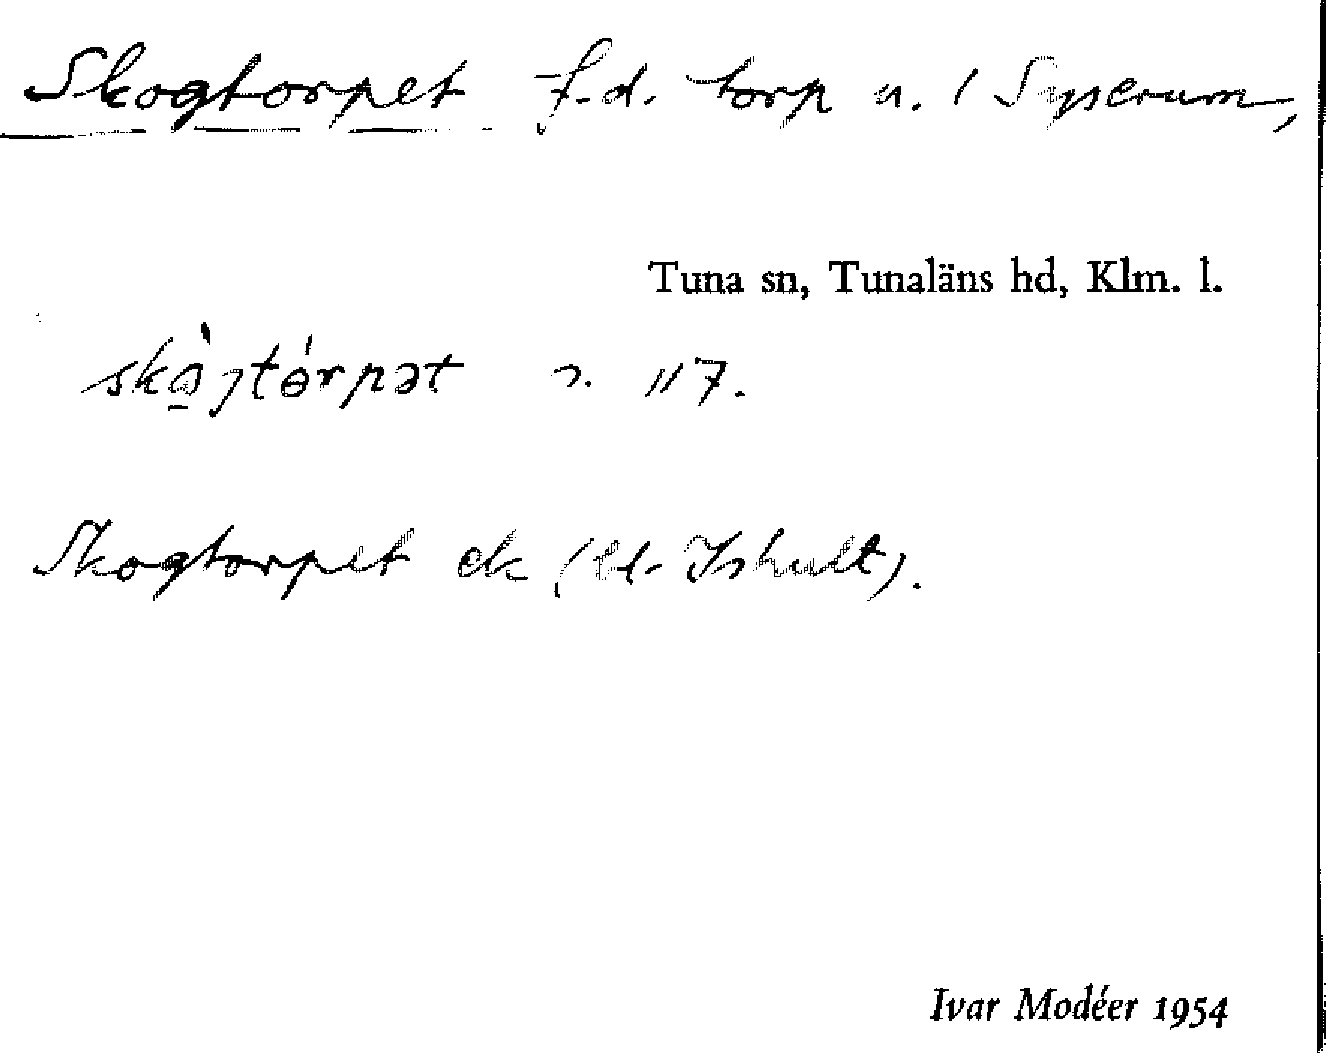 Skogtorpet f.d. torp u. / Syserum,
Tuna sn, Tunaläns hd, Klm. l.
skò̠gtórpət n. 117.
Skogtorpet ek (bl. Ishult).
Ivar Modéer 1954